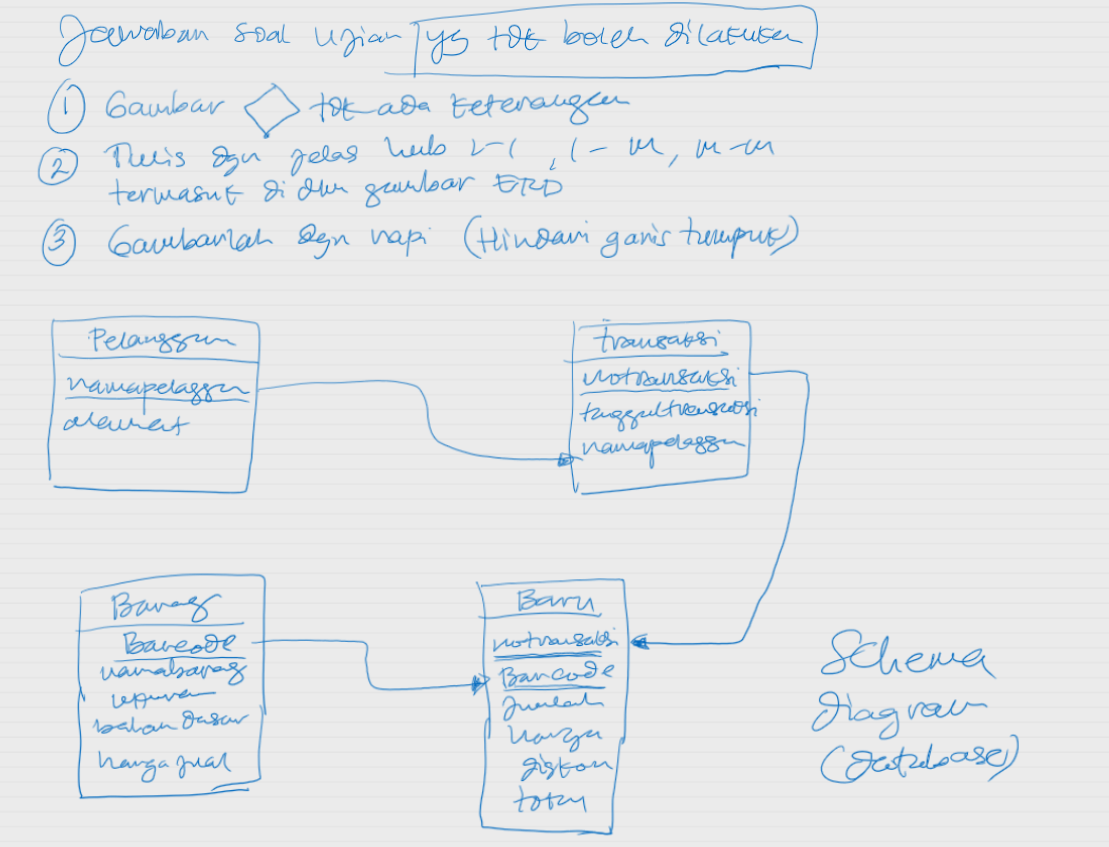 Jawaban soal ujian yg tdk boleh dilakukan
① Gambar tdk ada keterangan
② Tulis dgn jelas hub 1-1, 1-m, m-m
termasuk di dlm gambar ERD
③ Gambarlah dgn rapi (Hindari garis tumpuk)
Pelanggan
namapelaggn
alamat
transaksi
notransaksi
tanggaltransaksi
namapelaggn
Barag
Barcode
namabarag
ukuran
bahan dasar
harga jual
Baru
notransaksi
Barcode
Jumlah
harga
diskon
total
Schema
Diagram
(database)